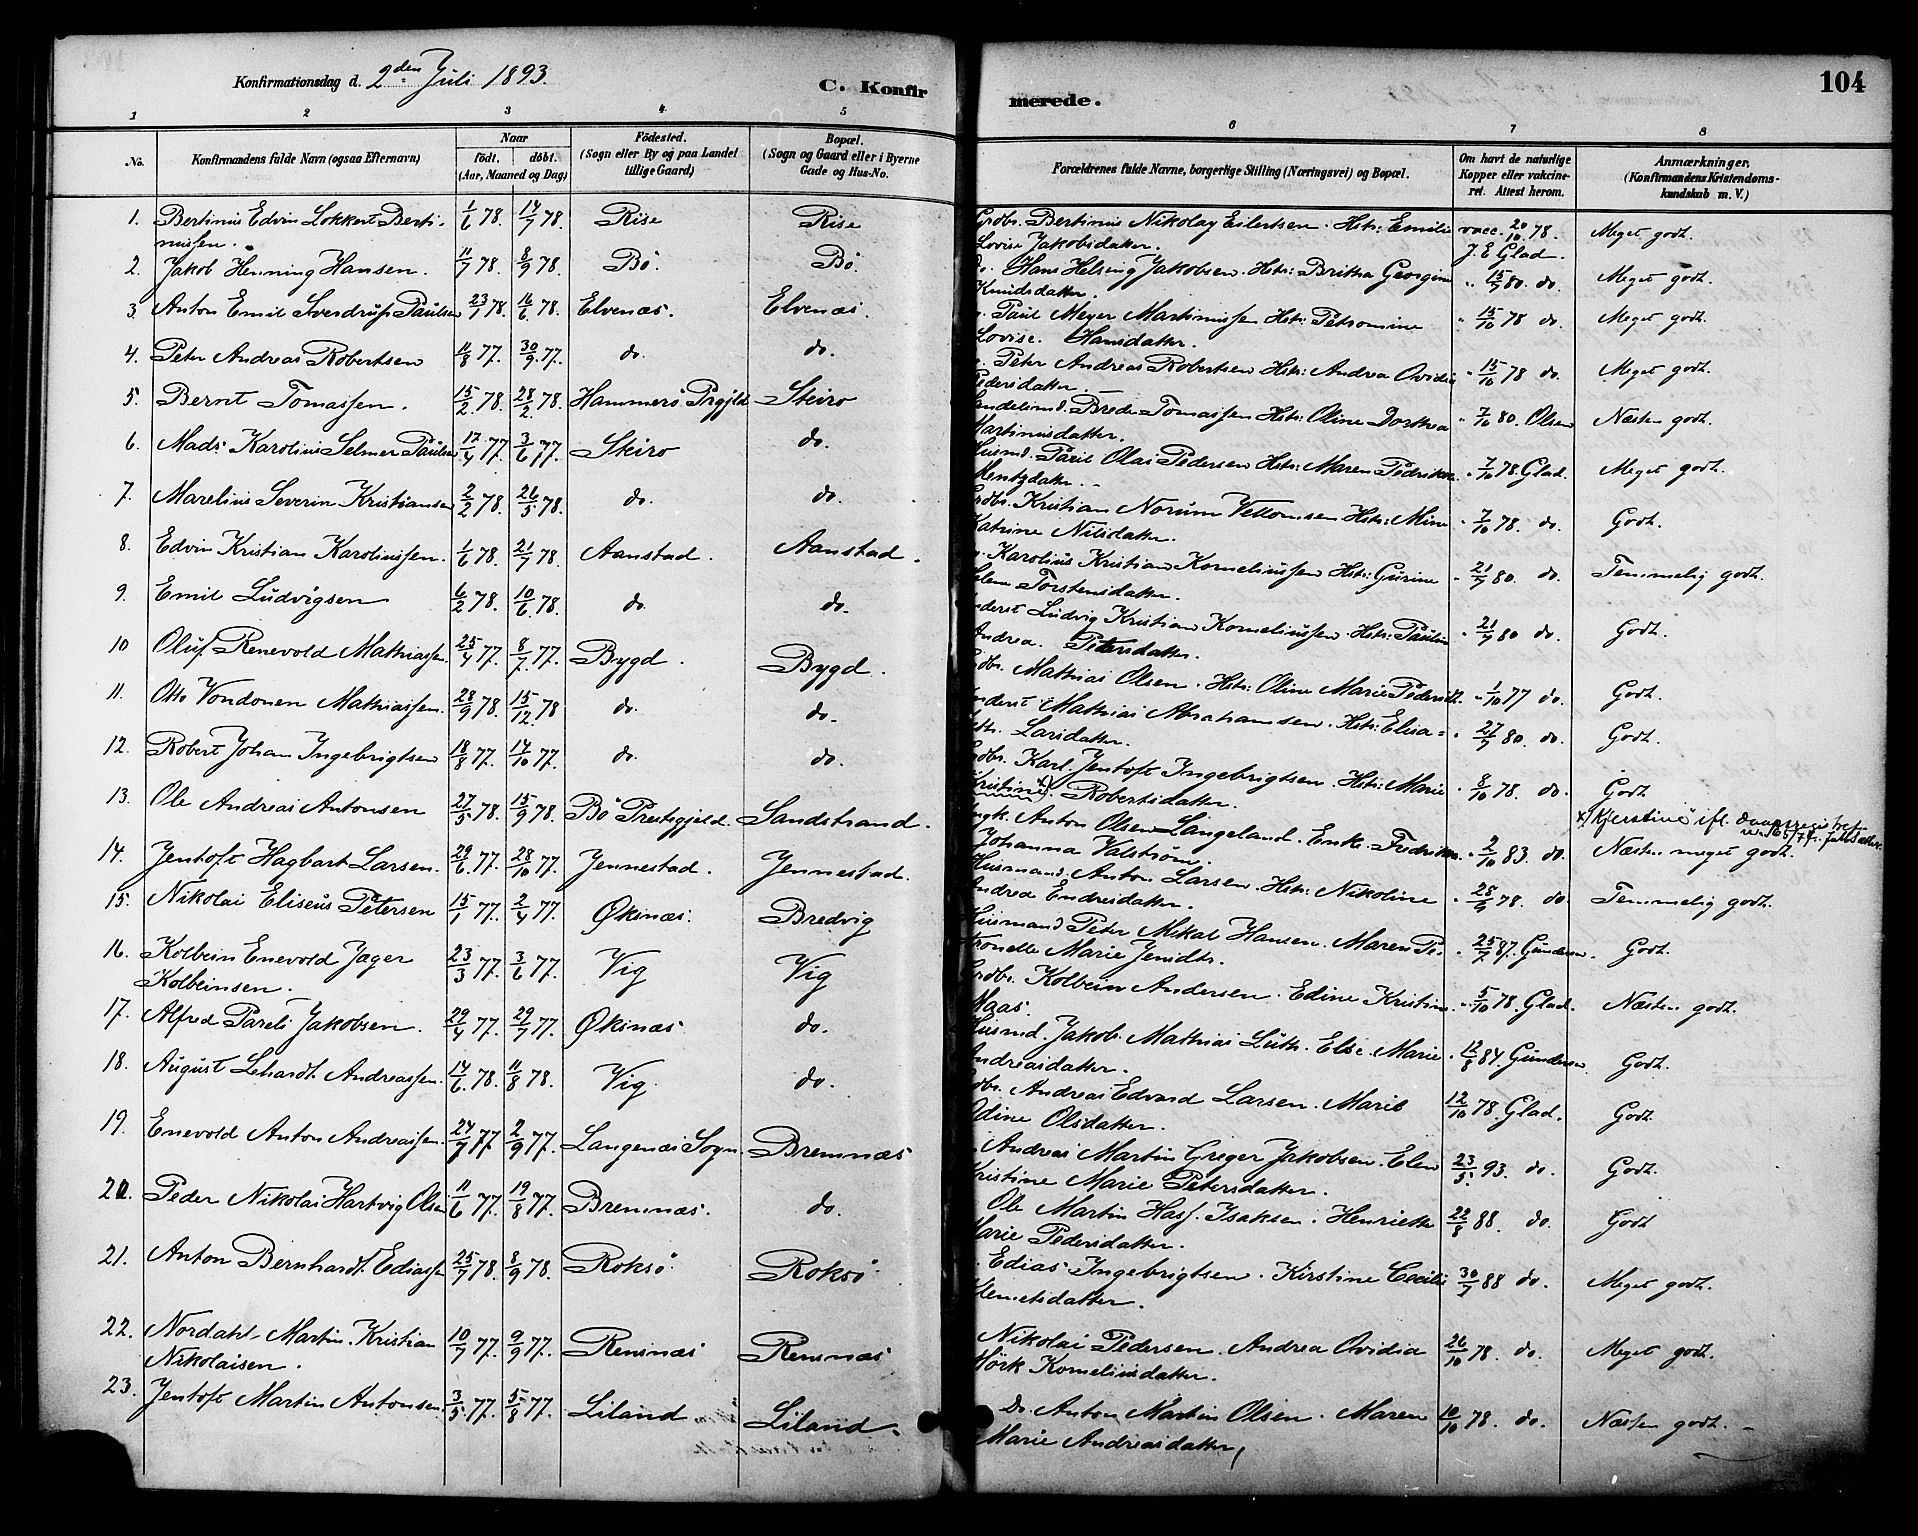 Konfirmationsdag d. 2den Juli 1893.
C. Konfirmerede.
104
1 2 3 4 5 6 7 8
No.
Konfirmandens fulde Navn (ogsaa Efternavn)
Naar
födt. döbt.
(Aar, Maaned og Dag)
Födested.
(Sogn eller By og paa Landet
tillige Gaard)
Bopæl.
(Sogn og Gaard eller i Byerne
Gade og Hus-No.
Forældrenes fulde Navne, borgerlige Stilling (Næringsvei) og Bopæl.
Om havt de naturlige
Kopper eller vakcine-
ret. Attest herom.
Anmærkninger,
(Konfirmandens Kristendoms-
kundskab m. V.)
1. Bertinius Edvin Lokkert Berti- 1/6 78. 14/7 78. Rise Rise Grdbr. Bertinius Nikolay Eilertsen. Hstr: Emilie vacc. 20/10 78. Meget godt.
niussen. Lovise Jakobsdatter. J. E. Glad.
2. Jakob Henning Hansen. 11/7 78. 8/9 78. Bö. Bö. do. Hans Helsing Jakobsen. Hstr: Britha Georgine " 15/9 80. do. Meget godt.
Knudsdatter.
3. Anton Emil Sverdrup Paulsen 23/1 78. 16/6 78. Elvenæs. Elvenæs. Paul Meyer Martinussen Hstr: Petromine " 15/10 78 do. Meget godt.
Lovise. Hansdatter.
4. Peter Andreas Robertsen 11/8 77. 30/9 77. do. do. Peter Andreas Robertsen Hstr: Andrea Ovidia " 15/10 78 do. Meget godt.
Pedersdatter.
5. Bernt Tomassen. 15/2 78. 28/2 78. Hammerö Prgjld. Skiro Handelsmd. Brede Tomassen Hstr: Oline Dorthea " 7/10 80. Olsen Næsten godt.
Martinusdatter.
6. Mads Karolius Selmer Paulsen 17/4 77. 3/6 77. Skiro do. Husmd. Paul Olai Pedersen Hstr: Maren Fedrikke " 7/10 78. Glad. Meget godt.
Mentzdatter.
7. Marelius Severin Kristiansen 2/2 78. 26/5 78. do. do. Grdbr. Kristian Norum Vettomsen Hstr: Mine " 7/10 78. do. Godt.
Katrine Nilsdatter.
8. Edvin Kristian Karoliussen. 1/6 78. 21/7 78. Aanstad. Aanstad. Karolius Kristian Korneliussen Hstr: Gurine " 21/9 80. do. Temmelig godt.
Elene Torstensdatter.
9. Emil Ludvigsen 6/2 78. 10/6 78. do. do. Inderst Ludvig Kristian Korneliussen. Hstr: Pauline " 21/9 80 do. Godt.
Andrea. Petersdatter.
10 Oluf Renevold Mathiassen. 25/4 77. 8/7 77. Bygd. Bygd. Grdbr. Mathias Olsen. Hstr: Oline Marie Pedersdt. " 1/10 77 do. Godt.
11. Otto Vondonen Mathiassen. 28/9 78. 15/12 78 do. do. Inderst Mathias Abrahamsen. Hstr: Elisa= " 27/9 80. do. Godt.
beth. Larsdatter.
12. Robert Johan Ingebrigtsen 18/8 77. 14/10 77. do. do. Grdbr. Karl Jentoft Ingebrigtsen. Hstr: Marie " 8/10 78. do. Godt
Kristine x). Robertsdatter. x) "Kjerstine" ifl.
13. Ole Andreas Antonsen 27/5 78. 15/9 78. Bö Prestegjeld. Sandstrand. Ungk. Anton Olsen Langeland. Enke. Fredrikke " 2/10 83. do. Næsten meget godt.
Johanna Valström.
14. Jentoft Hagbart Larsen. 29/6 77. 28/10 77. Jennestad. Jennestad. Husmand. Anton Larsen. Hstr: Nikoline " 28/9 78. do. Temmelig godt.
Andrea Endresdatter.
15. Nikolai Eliseus Petersen 15/1 77. 2/4 77. Øksnæs. Bredvig Husmand Peter Mikal Hansen. Maren Pe- " 25/7 87. Gundersen. Godt.
tronelle Marie Jensdtr.
16. Kolbein Enevold Jager 23/3 77. 3/6 77. Vig Vig Grdbr. Kolbein Andersen. Edine Kristine " 5/10 78. Glad. Næsten godt.
Kolbeinsen. Maas.
17. Alfred Pareli Jakobsen. 29/4 77. 29/7 77. Øksnæs. do. Husmd. Jakob Mathias Luth. Else Marie " 12/8 84 Gundersen. Godt.
Andreasdatter.
18. August Lehardt Andreassen. 14/6 78. 11/8 78. Vig. do. Grdbr. Andreas Edvard Larsen. Marie 12/10 78. Glad. Godt.
Odine Olsdatter.
19. Enevold Anton Andreassen. 24/7 77. 2/9 77. Langenæs Sogn. Bremnæs Andreas Martin Greger Jakobsen. Elen 23/5 93. do. Godt.
Kristine Marie Petersdatter.
20. Peder Nikolai Hartvig Olsen 11/6 77. 19/8 77. Bremnæs. do. Ole Martin Hass. Isaksen. Henriette 22/8 88. do. Godt
Marie Pedersdatter.
21. Anton Bernhardt Ediassen 25/7 78. 8/9 78. Roksö Roksö Edias Ingebrigtsen. Kirstine Cecilie 30/7 88 do. Meget godt.
Klemetsdatter.
22. Nordahl Martin Kristian 10/7 77. 9/9 77. Rensnæs Rensnæs Nikolai Pedersen. Andrea Ovidia 26/10 78. do. Meget godt.
Nikolaisen. Mörk Korneliusdatter.
23. Jentoft Martin Antonsen. 3/5 77. 5/8 77. Liland Liland. Do. Anton Martin Olsen. Maren 10/10 78. do. Næsten godt.
Marie Andreasdatter.